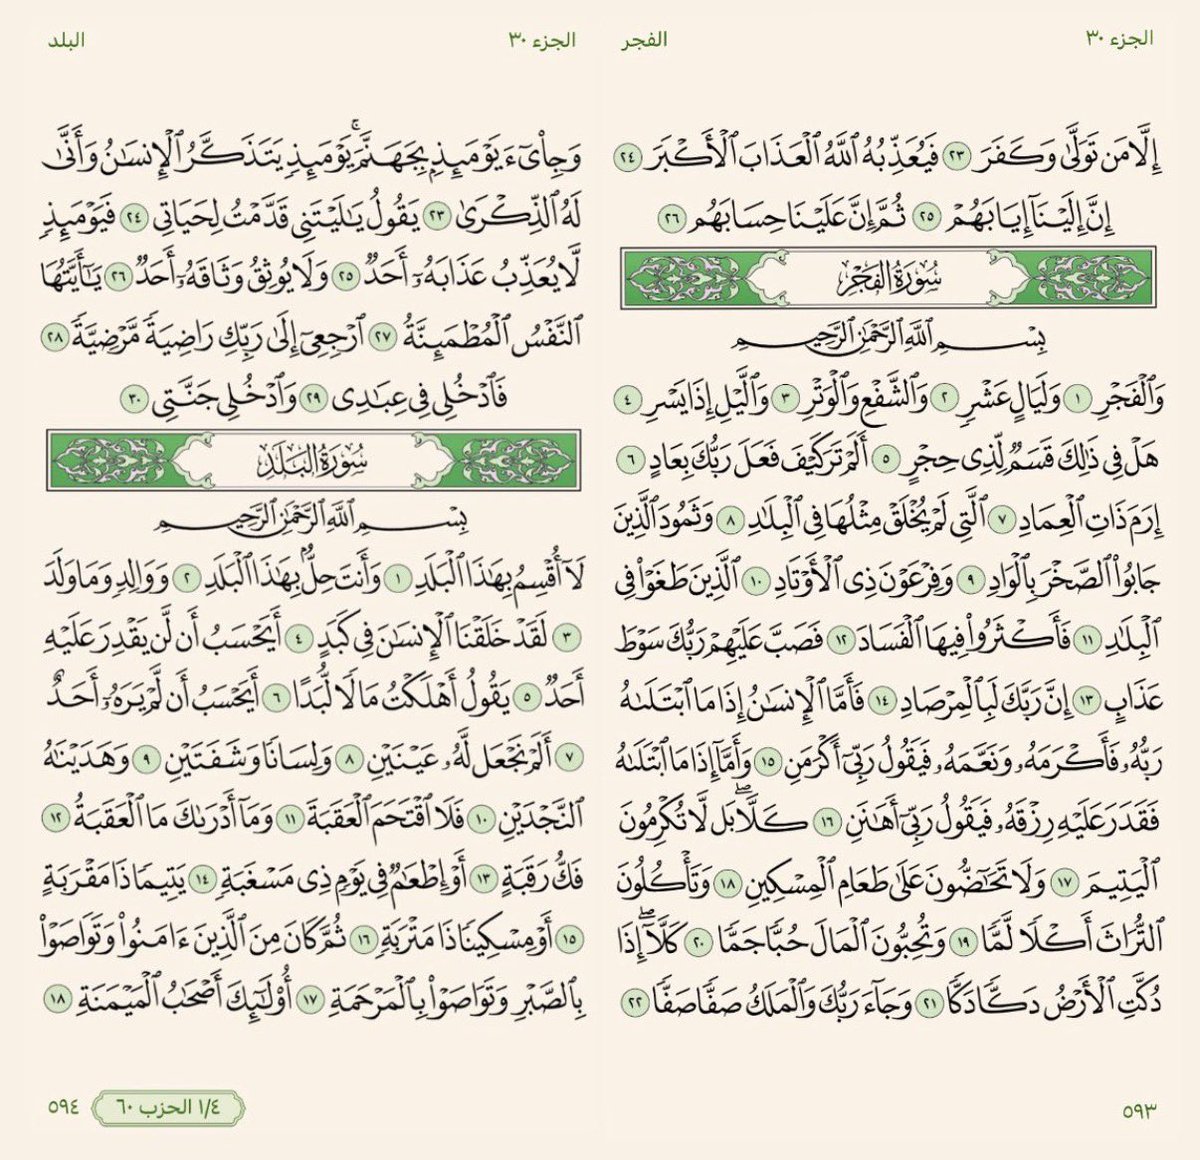 الجزء ٣٠
الفجر
إِلَّا مَن تَوَلَّىٰ وَكَفَرَ ٢٣ فَيُعَذِّبُهُ ٱللَّهُ ٱلْعَذَابَ ٱلْأَكْبَرَ ٢٤
إِنَّ إِلَيْنَآ إِيَابَهُمْ ٢٥ ثُمَّ إِنَّ عَلَيْنَا حِسَابَهُم ٢٦
سُورَةُ الفَجْرِ
بِسْمِ ٱللَّهِ ٱلرَّحْمَٰنِ ٱلرَّحِيمِ
وَٱلْفَجْرِ ١ وَلَيَالٍ عَشْرٍ ٢ وَٱلشَّفْعِ وَٱلْوَتْرِ ٣ وَٱلَّيْلِ إِذَا يَسْرِ ٤
هَلْ فِى ذَٰلِكَ قَسَمٌ لِّذِى حِجْرٍ ٥ أَلَمْ تَرَ كَيْفَ فَعَلَ رَبُّكَ بِعَادٍ ٦
إِرَمَ ذَاتِ ٱلْعِمَادِ ٧ ٱلَّتِى لَمْ يُخْلَقْ مِثْلُهَا فِى ٱلْبِلَٰدِ ٨ وَثَمُودَ ٱلَّذِينَ
جَابُوا۟ ٱلصَّخْرَ بِٱلْوَادِ ٩ وَفِرْعَوْنَ ذِى ٱلْأَوْتَادِ ١٠ ٱلَّذِينَ طَغَوْا۟ فِى
ٱلْبِلَٰدِ ١١ فَأَكْثَرُوا۟ فِيهَا ٱلْفَسَادَ ١٢ فَصَبَّ عَلَيْهِمْ رَبُّكَ سَوْطَ
عَذَابٍ ١٣ إِنَّ رَبَّكَ لَبِٱلْمِرْصَادِ ١٤ فَأَمَّا ٱلْإِنسَٰنُ إِذَا مَا ٱبْتَلَىٰهُ
رَبُّهُۥ فَأَكْرَمَهُۥ وَنَعَّمَهُۥ فَيَقُولُ رَبِّىٓ أَكْرَمَنِ ١٥ وَأَمَّآ إِذَا مَا ٱبْتَلَىٰهُ
فَقَدَرَ عَلَيْهِ رِزْقَهُۥ فَيَقُولُ رَبِّىٓ أَهَٰنَنِ ١٦ كَلَّا ۖ بَل لَّا تُكْرِمُونَ
ٱلْيَتِيمَ ١٧ وَلَا تَحَٰٓضُّونَ عَلَىٰ طَعَامِ ٱلْمِسْكِينِ ١٨ وَتَأْكُلُونَ
ٱلتُّرَاثَ أَكْلًا لَّمًّا ١٩ وَتُحِبُّونَ ٱلْمَالَ حُبًّا جَمًّا ٢٠ كَلَّآ ۖ إِذَا
دُكَّتِ ٱلْأَرْضُ دَكًّا دَكًّا ٢١ وَجَآءَ رَبُّكَ وَٱلْمَلَكُ صَفًّا صَفًّا ٢٢
٥٩٣
الجزء ٣٠
البلد
وَجِا۟ىٓءَ يَوْمَئِذٍۭ بِجَهَنَّمَ ۚ يَوْمَئِذٍ يَتَذَكَّرُ ٱلْإِنسَٰنُ وَأَنَّىٰ
لَهُ ٱلذِّكْرَىٰ ٢٣ يَقُولُ يَٰلَيْتَنِى قَدَّمْتُ لِحَيَاتِى ٢٤ فَيَوْمَئِذٍ
لَّا يُعَذِّبُ عَذَابَهُۥٓ أَحَدٌ ٢٥ وَلَا يُوثِقُ وَثَاقَهُۥٓ أَحَدٌ ٢٦ يَٰٓأَيَّتُهَا
ٱلنَّفْسُ ٱلْمُطْمَئِنَّةُ ٢٧ ٱرْجِعِىٓ إِلَىٰ رَبِّكِ رَاضِيَةً مَّرْضِيَّةً ٢٨
فَٱدْخُلِى فِى عِبَٰدِى ٢٩ وَٱدْخُلِى جَنَّتِى ٣٠
سُورَةُ البَلَدِ
بِسْمِ ٱللَّهِ ٱلرَّحْمَٰنِ ٱلرَّحِيمِ
لَآ أُقْسِمُ بِهَٰذَا ٱلْبَلَدِ ١ وَأَنتَ حِلٌّۢ بِهَٰذَا ٱلْبَلَدِ ٢ وَوَالِدٍ وَمَا وَلَدَ
٣ لَقَدْ خَلَقْنَا ٱلْإِنسَٰنَ فِى كَبَدٍ ٤ أَيَحْسَبُ أَن لَّن يَقْدِرَ عَلَيْهِ
أَحَدٌ ٥ يَقُولُ أَهْلَكْتُ مَالًا لُّبَدًا ٦ أَيَحْسَبُ أَن لَّمْ يَرَهُۥٓ أَحَدٌ
٧ أَلَمْ نَجْعَل لَّهُۥ عَيْنَيْنِ ٨ وَلِسَانًا وَشَفَتَيْنِ ٩ وَهَدَيْنَٰهُ
ٱلنَّجْدَيْنِ ١٠ فَلَا ٱقْتَحَمَ ٱلْعَقَبَةَ ١١ وَمَآ أَدْرَىٰكَ مَا ٱلْعَقَبَةُ ١٢
فَكُّ رَقَبَةٍ ١٣ أَوْ إِطْعَٰمٌ فِى يَوْمٍ ذِى مَسْغَبَةٍ ١٤ يَتِيمًا ذَا مَقْرَبَةٍ
١٥ أَوْ مِسْكِينًا ذَا مَتْرَبَةٍ ١٦ ثُمَّ كَانَ مِنَ ٱلَّذِينَ ءَامَنُوا۟ وَتَوَاصَوْا۟
بِٱلصَّبْرِ وَتَوَاصَوْا۟ بِٱلْمَرْحَمَةِ ١٧ أُو۟لَٰٓئِكَ أَصْحَٰبُ ٱلْمَيْمَنَةِ ١٨
١/٤ الحزب ٦٠
٥٩٤